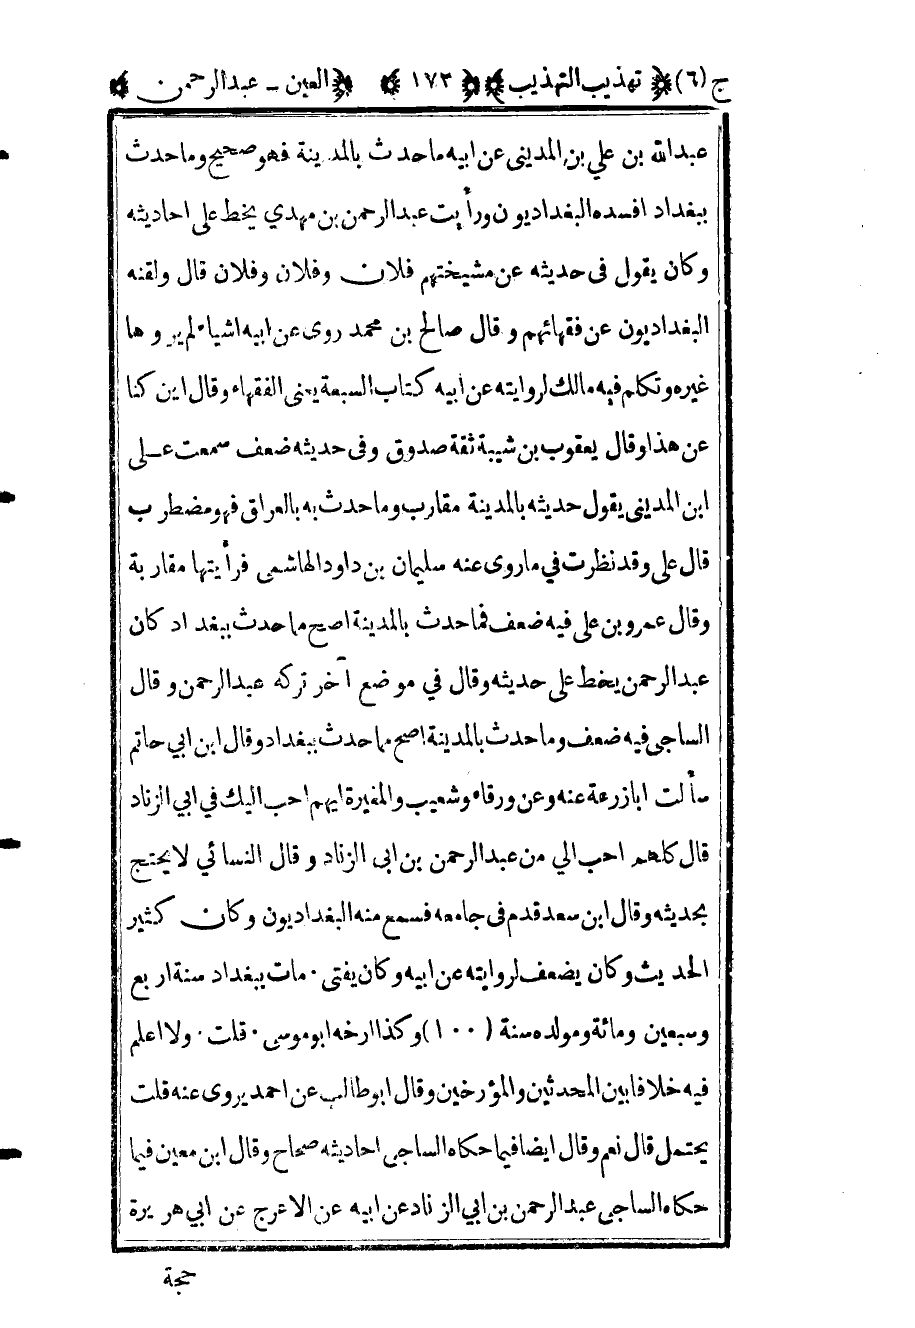 ج (٦) تهذيب التهذيب ١٧٢ العين - عبدالرحمن
عبدالله بن علي بن المديني عن ابيه ماحدث بالمدينة فهو صحيح وماحدث
ببغداد افسده البغداديون ورأيت عبدالرحمن بن مهدي يخط على احاديثه
وكان يقول فى حديثه عن مشيختهم فلان وفلان وفلان قال ولقنه
البغداديون عن فقهائهم وقال صالح بن محمد روى عن ابيه اشياء لم يروها
غيره وتكلم فيه مالك لروايته عن ابيه كتاب السبعة يعنى الفقهاء وقال اين كنا
عن هذا وقال يعقوب بن شيبة ثقة صدوق وفى حديثه ضعف سمعت على
ابن المدينى يقول حديثه بالمدينة مقارب وماحدث به بالعراق فهو مضطرب
قال على وقد نظرت في ماروى عنه سليمان بن داود الهاشمى فرأيتها مقاربة
وقال عمرو بن على فيه ضعف فماحدث بالمدينة اصح مماحدث ببغداد كان
عبدالرحمن يخط على حديثه وقال في موضع آخر تركه عبدالرحمن وقال
الساجى فيه ضعف وماحدث بالمدينة اصح مماحدث ببغداد وقال ابن ابي حاتم
سألت ابازرعة عنه وعن ورقاء وشعيب والمغيرة ايهم احب اليك في ابي الزناد
قال كلهم احب الي من عبدالرحمن بن ابى الزناد وقال النسائي لايحتج
بحديثه وقال ابن سعد قدم فى جامعه فسمع منه البغداديون وكان كثير
الحديث وكان يضعف لروايته عن ابيه وكان يفتى · مات ببغداد سنة اربع
وسبعين ومائة ومولده سنة (١٠٠) وكذا ارخه ابوموسى · قلت · ولا اعلم
فيه خلافا بين المحدثين والمؤرخين وقال ابوطالب عن احمد يروى عنه قلت
يحتمل قال نعم وقال ايضا فيما حكاه الساجى احاديثه صحاح وقال ابن معين فيما
حكاه الساجى عبدالرحمن بن ابي الزناد عن ابيه عن الاعرج عن ابي هريرة
حجة